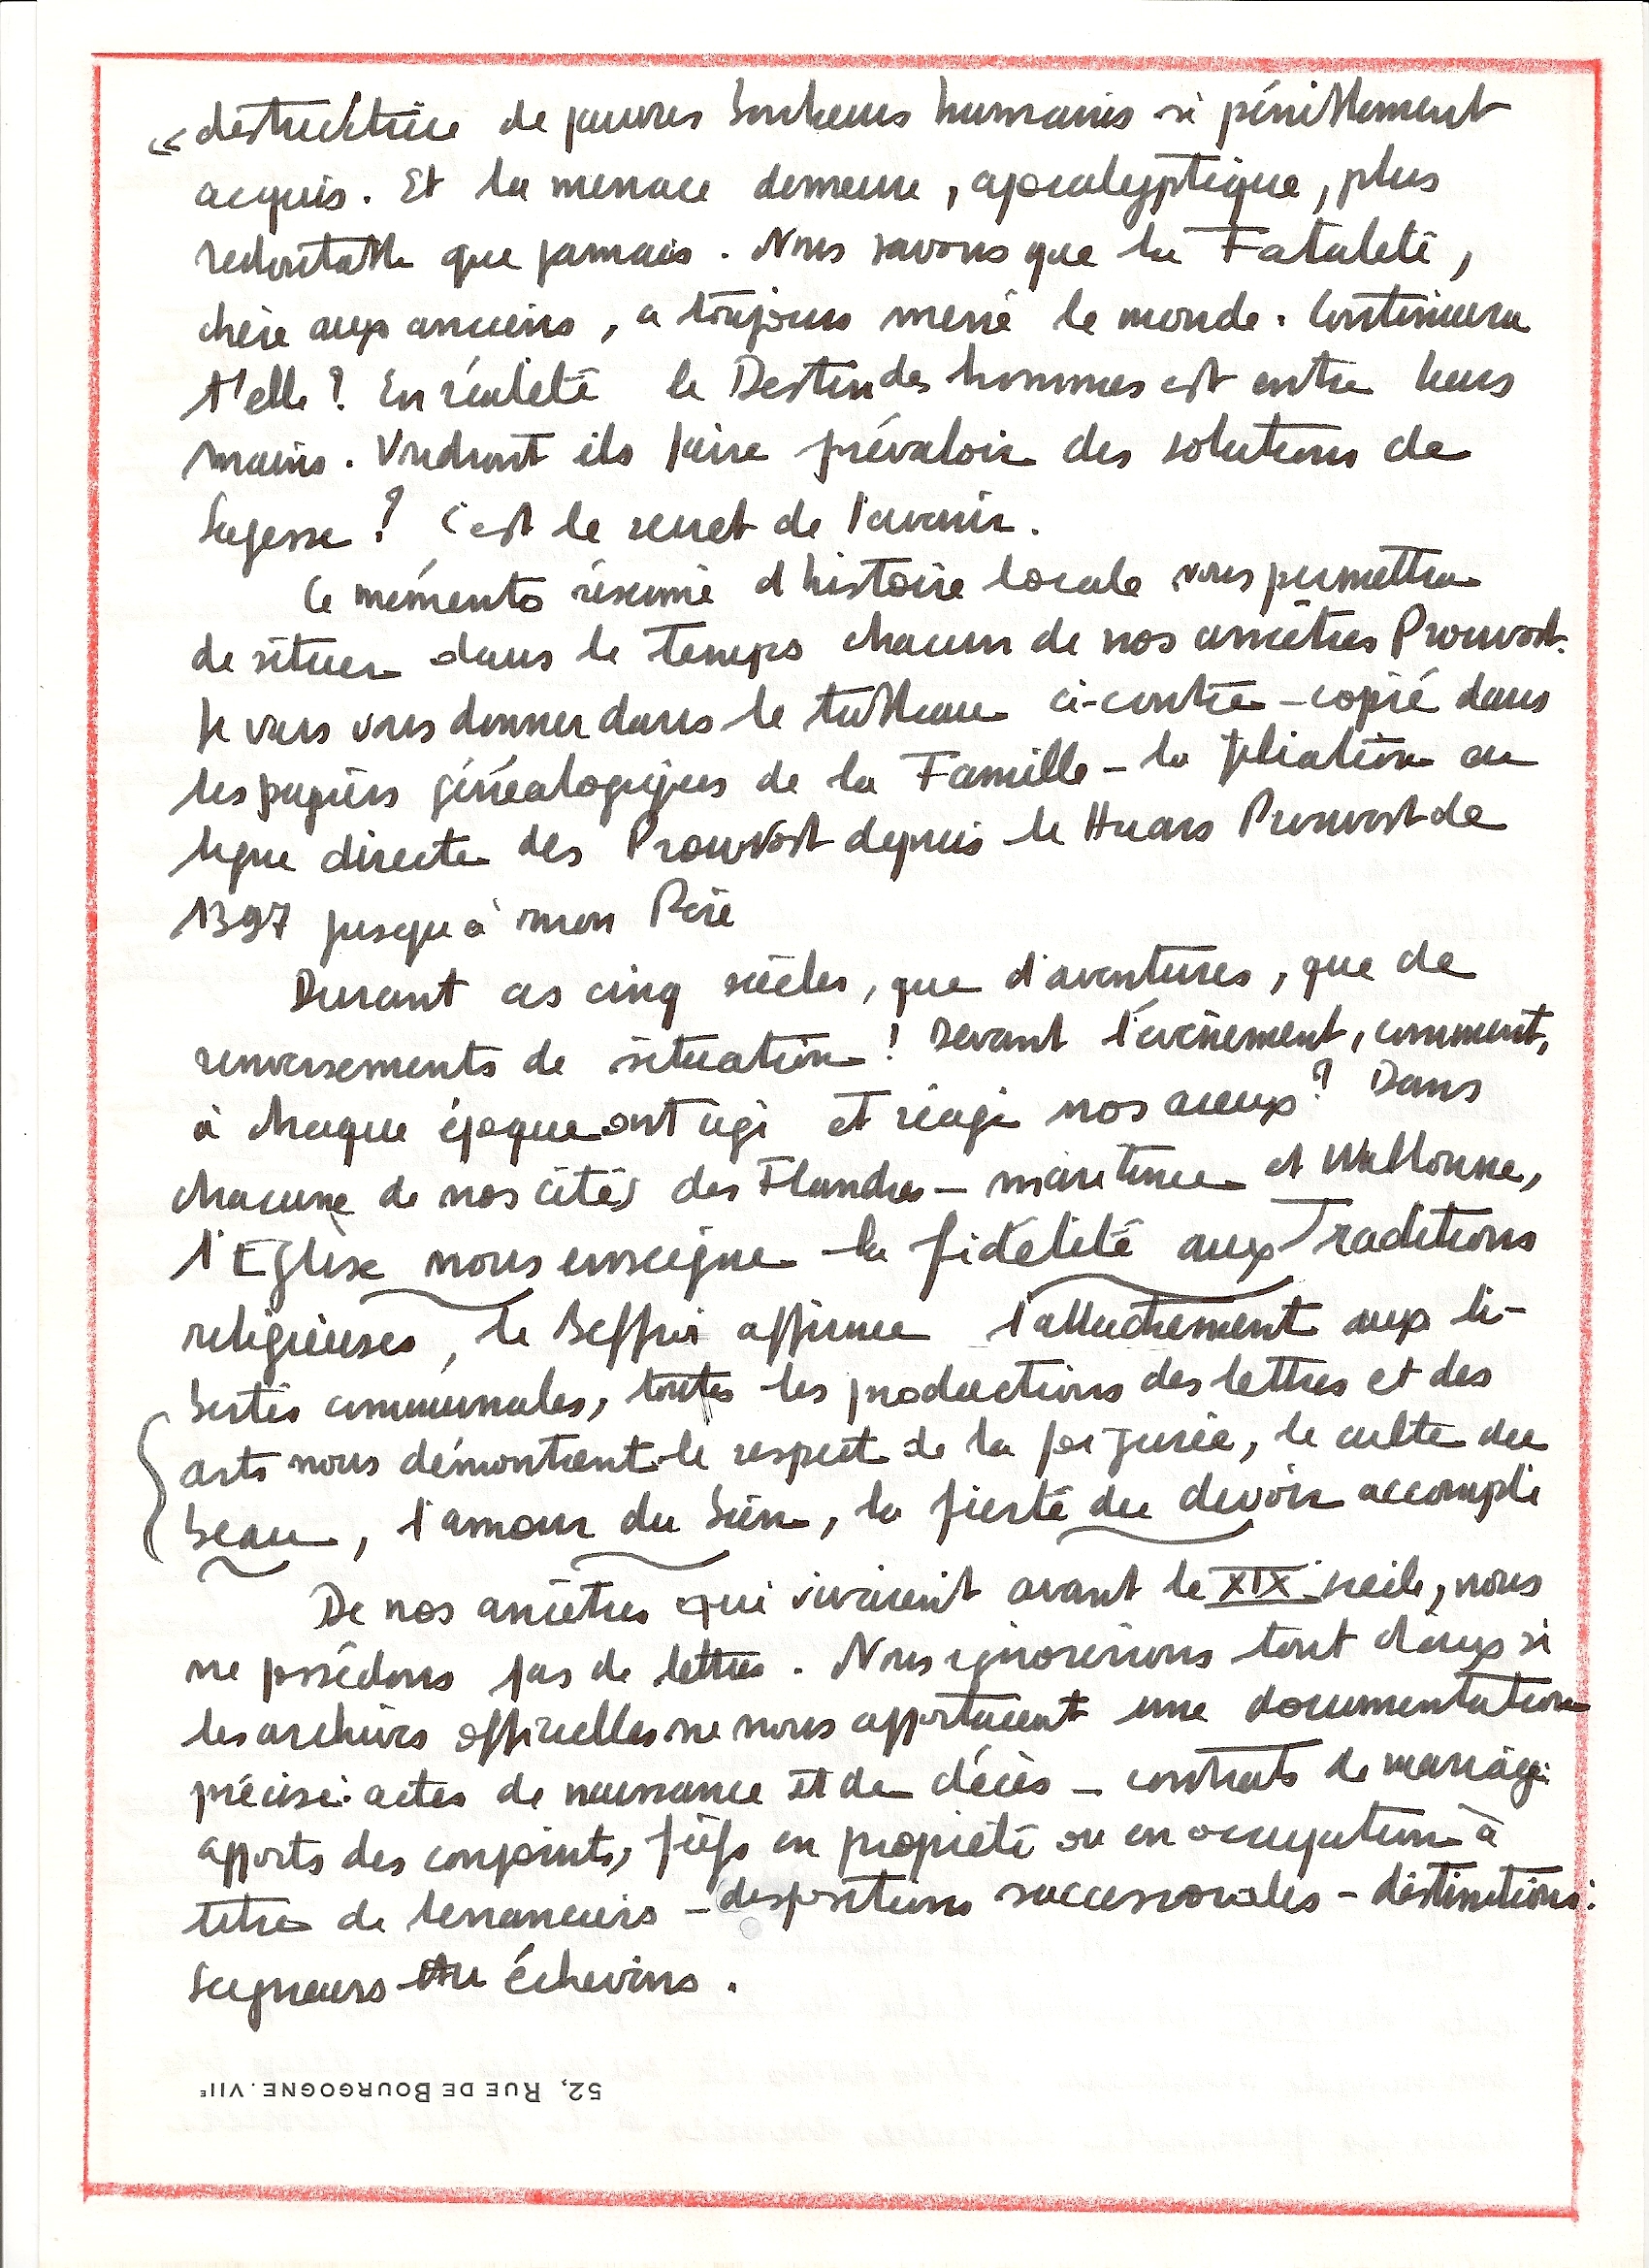 « destructrice de pauvres bonheurs humains si péniblement
acquis. Et la menace demeure, apocalyptique, plus
redoutable que jamais. Nous savons que la Fatalité,
chère aux anciens, a toujours mené le monde. Continuera
t'elle ? En réalité le Destin des hommes est entre leurs
mains. Voudront ils faire prévaloir des solutions de
Sagesse ? C'est le secret de l'avenir.
Ce mémento résumé d'histoire locale vous permettra
de situer dans le Temps chacun de nos ancêtres Prouvost.
Je vais vous donner dans le tableau ci-contre - copié dans
les papiers généalogiques de la Famille - la filiation en
ligne directe des Prouvost depuis le Huars Prouvost de
1397 jusqu'à mon Père
Durant ces cinq siècles, que d'aventures, que de
renversements de situation ! Devant l'évènement, comment,
à chaque époque ont agi et réagi nos aieux ? Dans
chacune de nos cités des Flandres - maritime et Wallonne,
l'Eglise nous enseigne la fidélité aux Traditions
religieuses, le Beffroi affirme l'attachement aux li-
bertés communales, toutes les productions des lettres et des
arts nous démontrent le respect de la foi jurée, le culte du
beau, l'amour du bien, la fierté du devoir accompli
De nos ancêtres qui vivaient avant le XIX siècle, nous
ne possédons pas de lettres. Nous ignorerions tout d'eux si
les archives officielles ne nous apportaient une documentation
précise: actes de naissance et de décès - contrats de mariage:
apports des conjoints, fiefs en propriété ou en occupation à
titre de tenanciers - dispositions successorales - distinctions:
Seigneurs ou échevins.
52, RUE DE BOURGOGNE. VIIE